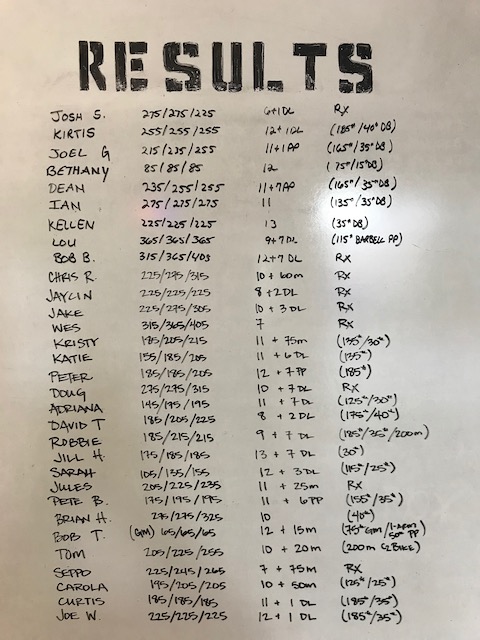 RESULTS
JOSH S. 275/275/225 6+1DL RX
KIRTIS 255/255/255 12+1DL (185#/40# DB)
JOEL G 215/225/255 11+1PP (165#/35# DB)
BETHANY 85/85/85 12 (75#/15# DB)
DEAN 235/255/255 11+7PP (165#/35# DB)
IAN 275/275/275 11 (135#/35# DB)
KELLEN 225/225/225 13 (35# DB)
LOU 365/365/365 9+7DL (115# BARBELL PP)
BOB B. 315/365/405 12+7 DL RX
CHRIS R. 225/275/315 10 + 60m RX
JAYLIN 225/225/225 8 +2DL RX
JAKE 225/275/305 10 + 3 DL RX
WES 315/365/405 7 RX
KRISTY 185/205/215 11 + 75m (135#/30#)
KATIE 155/185/205 11 + 6 DL (135#)
PETER 185/185/205 12 + 7 PP (185#)
DOUG 275/275/315 10 + 7 DL RX
ADRIANA 145/175/195 11 + 7 DL (125#/30#)
DAVID T 185/205/225 8 + 2 DL (175#/40#)
ROBBIE 185/215/215 9 + 7 DL (185#/35#/200m)
JILL H. 175/185/185 13 + 7 DL (30#)
SARAH 105/135/155 12 + 3 DL (115#/25#)
JULES 205/225/235 11 + 25m RX
PETE B. 175/195/195 11 + 6 PP (155#/35#)
BRIAN H. 275/275/325 10 (40#)
BOB T. (GM) 65/65/65 12 + 15m (75# GM/1-ARM 50# PP)
TOM 205/225/255 10 + 20m (200m C2BIKE)
SEPPO 225/245/265 7 + 75m RX
CAROLA 195/205/205 10 + 50m (125#/25#)
CURTIS 185/185/185 11 + 1 DL (185#/35#)
JOE W. 225/225/225 12 + 1 DL (185#/35#)